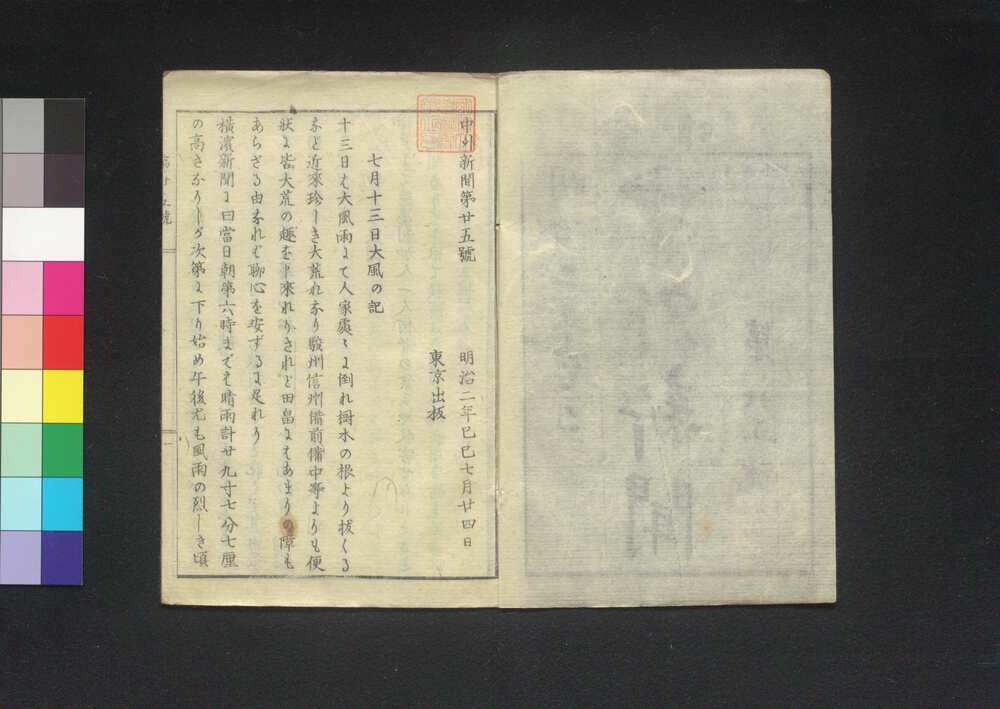 中外新聞第廿五號
明治二年巳巳七月廿四日
東京出板
七月十三日大風の記
十三日は大風雨にて人家處〻に倒れ樹木の根より拔くる
など近來珍しき大荒れなり駿州信州備前備中等よりも便
狀に皆大荒の趣を申來れりされど田畠にはあまりの障も
あらざる由なれば聊心を安ずるに足れり
橫濱新聞に曰當日朝第六時までは晴雨計廿九寸七分七厘
の高さなりしが次第に下り始め午後尤も風雨の烈しき頃